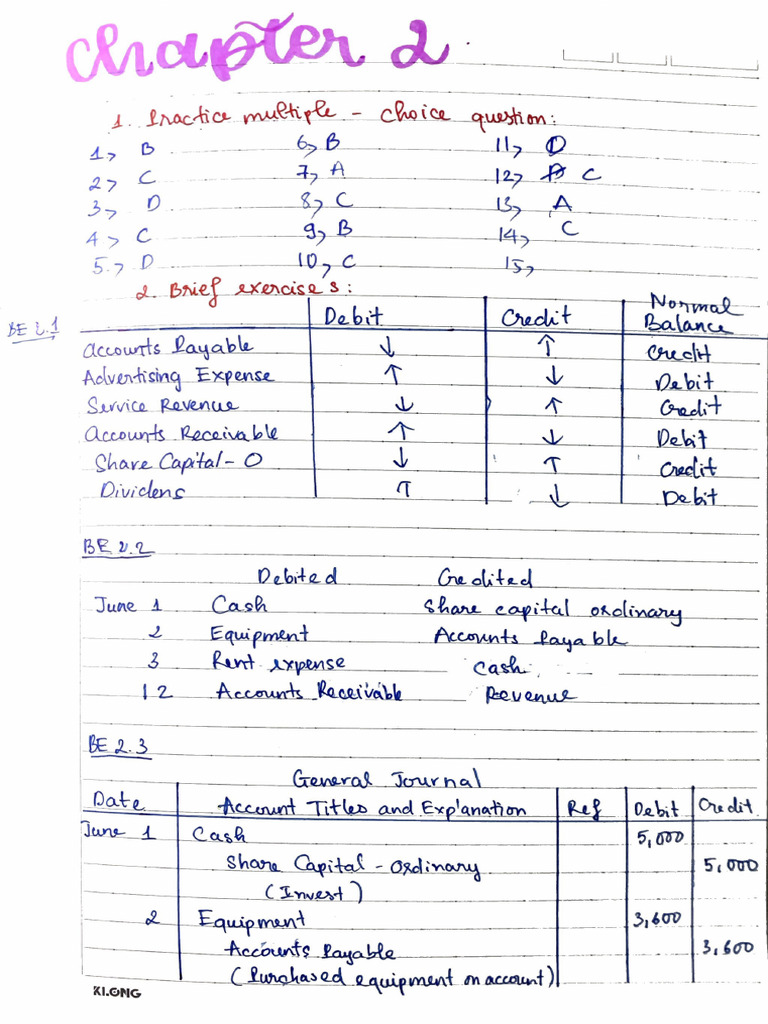 Chapter 2
1. Practice multiple - choice question:
1, B 6, B 11, D
2, C 7, A 12, C
3, D 8, C 13, A
4, C 9, B 14, C
5, D 10, C 15,
2. Brief exercises:
BE 2.1 Debit Credit Normal Balance
Accounts Payable ↓ ↑ Credit
Advertising Expense ↑ ↓ Debit
Service Revenue ↓ ↑ Credit
Accounts Receivable ↑ ↓ Debit
Share Capital - O ↓ ↑ Credit
Dividens ↑ ↓ Debit
BE 2.2
Debited Credited
June 1 Cash Share capital ordinary
2 Equipment Accounts Payable
3 Rent expense Cash
12 Accounts Receivable Revenue
BE 2.3
General Journal
Date Account Titles and Explanation Ref Debit Credit
June 1 Cash 5,000
Share Capital - Ordinary 5,000
(Invest)
2 Equipment 3,600
Accounts Payable 3,600
(Purchased equipment on account)
KLONG